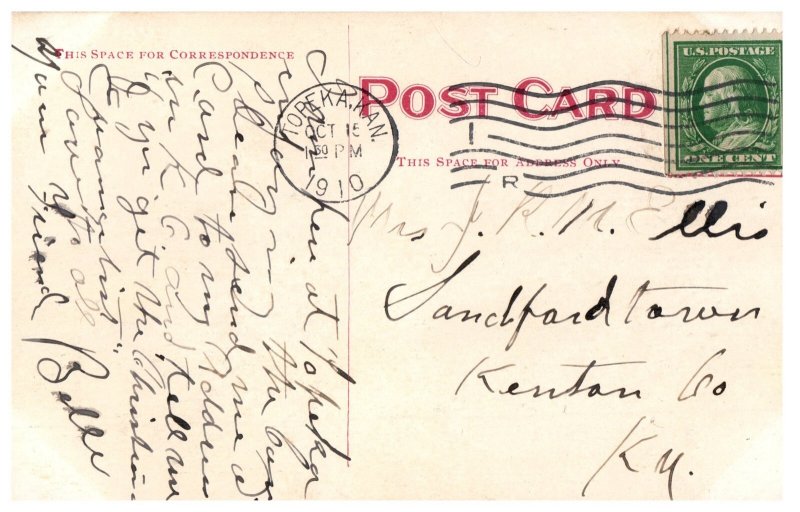 THIS SPACE FOR CORRESPONDENCE
POST CARD
THIS SPACE FOR ADDRESS ONLY
U.S. POSTAGE
ONE CENT
TOPEKA, KAN.
OCT 15
1 30 PM
1910
1
R
Mrs J. R. M. Ellis
Sandfordtown
Kenton Co
Ky.
at Topeka
the
please send me a
Card to my Address
in K C and tell me
if you get the Christian
love to all
your old
friend Belle